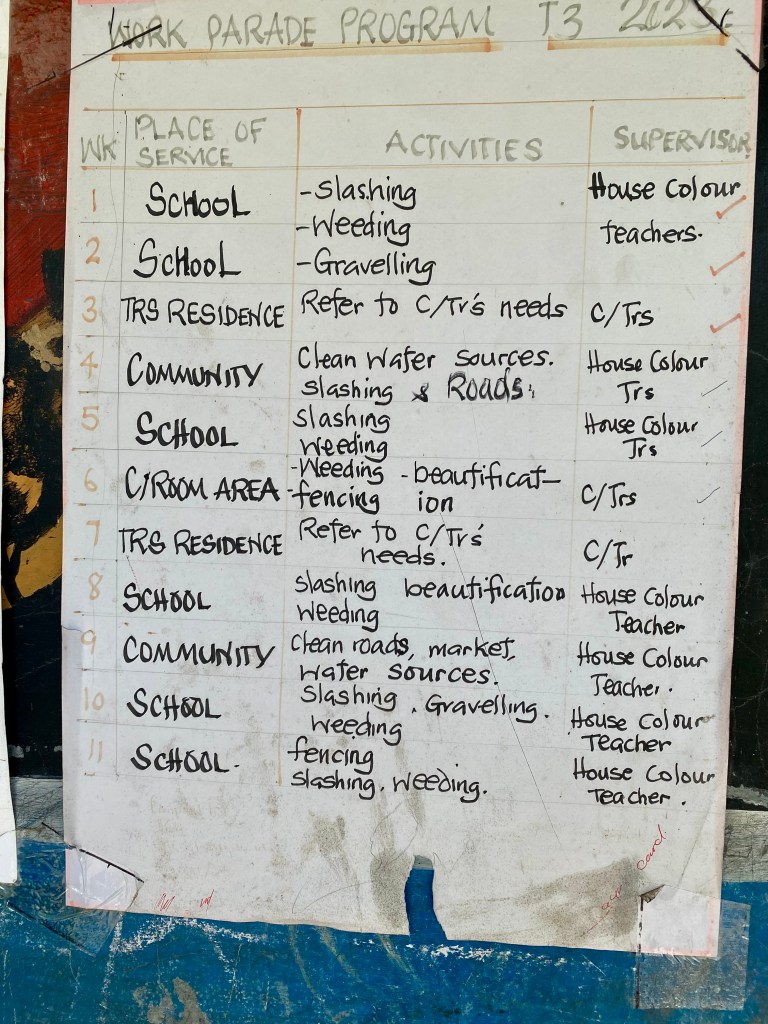 WORK PARADE PROGRAM T3 2023
WK PLACE OF SERVICE ACTIVITIES SUPERVISOR
1 SCHOOL -Slashing House Colour
-Weeding teachers.
2 SCHOOL -Gravelling
3 TRS RESIDENCE Refer to C/Tr's needs C/Trs
4 COMMUNITY Clean Water sources. House Colour
slashing & Roads. Trs
5 SCHOOL slashing House Colour
weeding Trs
6 C/ROOM AREA -Weeding -beautificat-
-fencing ion C/Trs
7 TRS RESIDENCE Refer to C/Tr's
needs. C/Tr
8 SCHOOL slashing beautification House Colour
Weeding Teacher
9 COMMUNITY Clean roads, market, House Colour
Water sources. Teacher.
10 SCHOOL Slashing, Gravelling. House Colour
Weeding Teacher
11 SCHOOL. fencing House Colour
slashing, weeding. Teacher.